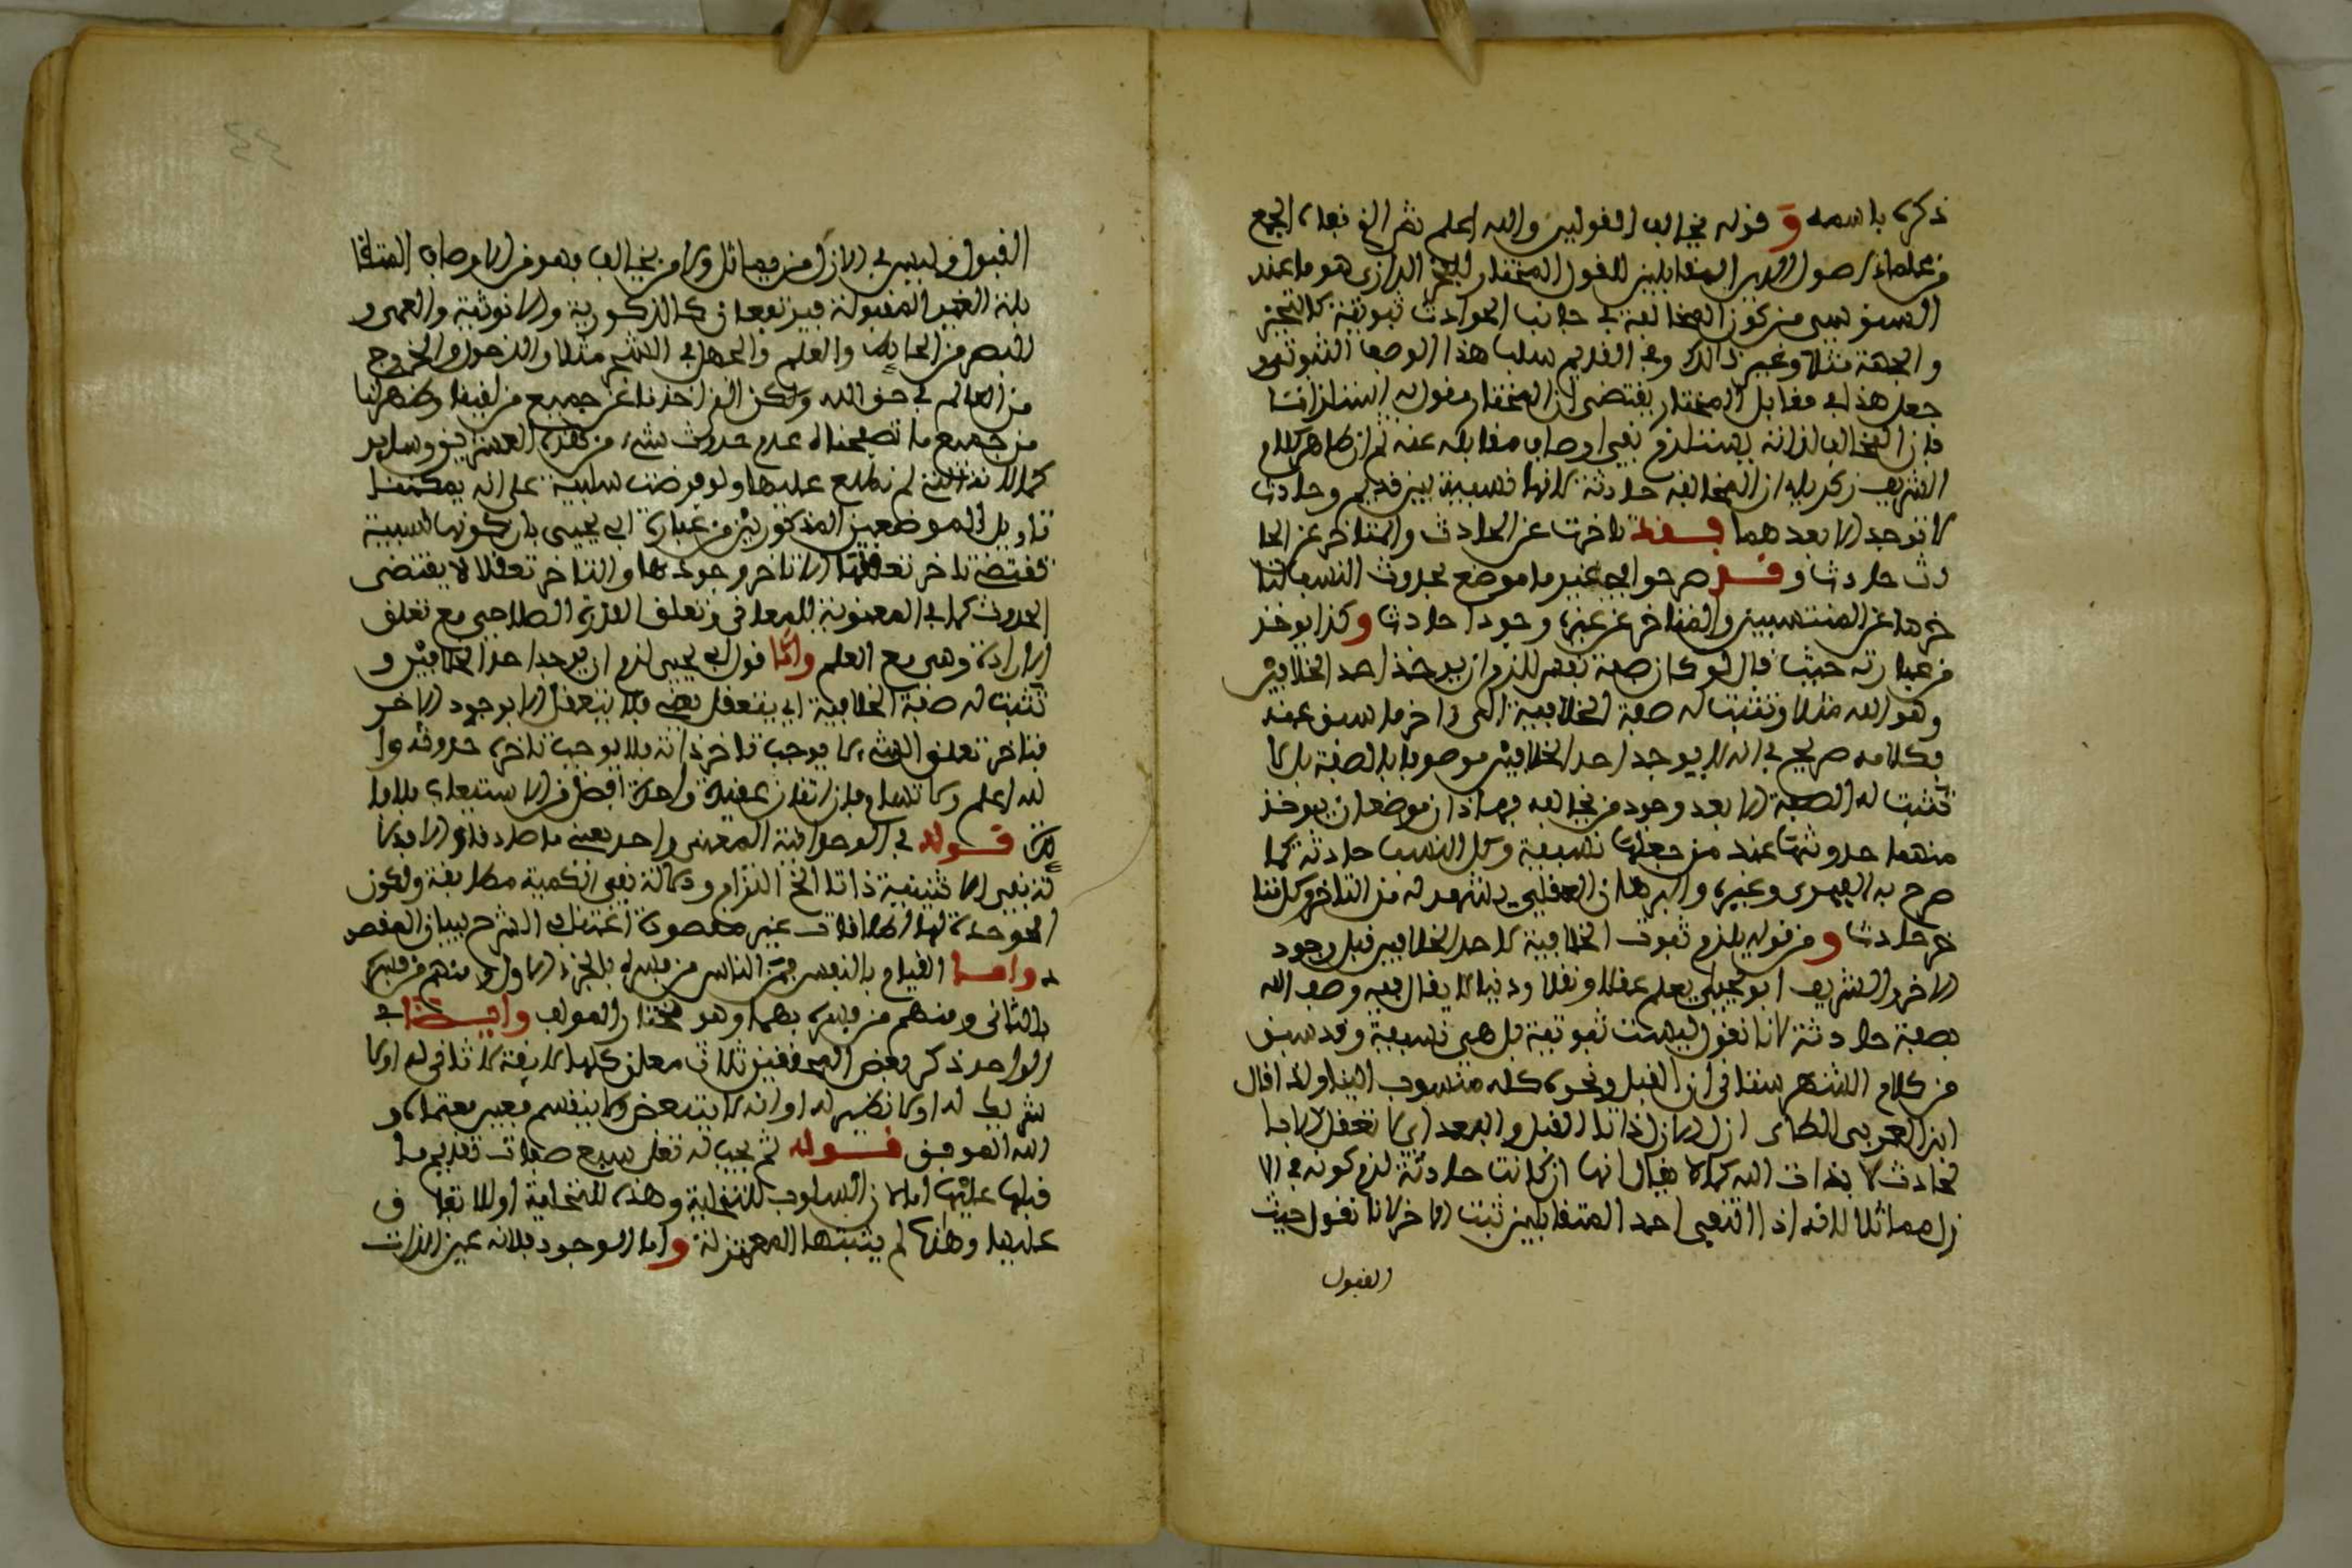 ذكره باسمه و قوله مخالف القولين والله اعلم ثم الخ نعله الجمع
من علماء اصول الدين المقابلين للقول المختار للفخر الرازي هو ما عند
السنوسي من كون المخالفة في جانب الحوادث ثبوتية كالتحيز
والجهة مثلا وغير ذالك وفي القديم سلب هذا الوصف الثبوتي و
جعل هذا في مقابل المختار يقتضي ان المختار مقوله استلزامات
فان المخالف لذاته يستلزم نفي اوصاف مقابله عنه ثم ان ظاهر كلام
الشريف زكرياء ان المخالفة حادثة لانها نسبة بين قديم وحادث
لا توجد الا بعدهما فقد تاخرت عن الحادث والمتاخر عن الحا
دث حادث وقد صرحوا في غير ما موضع بحدوث النسب لتا
خرها عن المنتسبين والمتاخر عن غيره وجودا حادث وكذا يوخذ
من عبارته حيث قال لو كان صفة نفس للزم ان يوخذ احد الخلافين
وهو الله مثلا وتثبت له صفة الخلافية الى اخر ما سبق عنه
فكلامه صريح في انه لا يوجد احد الخلافين موصوفا بالصفة بل لا
تثبت له الصفة الا بعد وجود من يخالفه فهاذان موضعان يوخذ
منهما حدوثها عند من جعلها نسبية وكل النسب حادثة كما
صرح به الفهري وغيره والبرهان العقلي يشهد له من التاخر وكل متا
خر حادث و من قوله يلزم ثبوت الخلافية لاحد الخلافين قبل وجود
الاخر والشريف ابو يحيى يعلم عقلا ونقلا ودنيا لا يقال فيه وصف الله
بصفة حادثة لانا نقول ليست ثبوتية بل هي نسبية وقد سبق
من كلام الشهرستاني ان القبل ونحوه كله منسوب الينا ولذا قال
ابن العربي الطائي ازل الازل لذاتنا القبل والبعد اي لا تعقل الا با
لحادث لا بذات الله كمالا يقال انها ان كانت حادثة لزم كونه في الا
زل مماثلا لانه اذا انتفى احد المتقابلين ثبت الاخر لانا نقول حيث
القبول
القبول وليس في الازل من يماثل ولا من يخالف فهو من الاوصاف المتقا
بلة الغير المقبولة فيرتفعان كالذكورية والانوثية والعمى و
البصر من الحايط والعلم والجهل في الشم مثلا والدخول والخروج
من العالم في حق الله ولكن الذي اخذنا عن جميع من لقينا وظهر لنا
من جميع ما تصفحناه عدم حدوث شيء من هذه العشرين وساير
كمالاته التي لم نطلع عليها ولو فرضت سلبية على انه يمكننا
تاويل الموضعين المذكورين من عبارة ابي يحيى بان كونها نسبية
تقتضي تاخر تعقلها لا تاخر وجودها والتاخر تعقلا لا يقتضي
الحدوث كما في المعنوية للمعاني وتعلق القدرة الصلاحي مع تعلق
الارادة وهي مع العلم واما قول ابي يحيى لزم ان يوجد احد الخلافين و
تثبت له صفة الخلافية اي يتعقل بعضي فلا يتعقل الا بوجود الاخر
فتاخر تعلق الشيء لا يوجب تاخر ذاته فلا يوجب تاخره حدوثه وا
لله اعلم ولا تسام فان اتقان عقيدة واحدة افضل من الاستيعاب بلا فا
يدة قوله في الوحدانية المعنى واحد يعني ما صادقاه الا فدلا
لته نفي الاثنينية ذاتا الخ التزام ودلالة نفي الكمية مطابقة ولكون
الوحدة لها اطلاقات غير مقصودة اعتنى في الشرح ببيان المقصو
د واما القيام بالنفس فمن الناس من فسره بالجزء الاول ومنهم من فسره
بالثاني ومنهم من فسره بهما وهو مختار المولف وايضا في
الواحد ذكر بعض المحققين ثلاث معان كلها لايقة لا ثاني له او لا
شريك له او لا نظير له او انه لا يتبعض ولا ينقسم فعبر بعتماده و
الله الموفق قوله ثم يجب له تعلى سبع صفات تقديم ما
قبلها عليها اما لان السلوب للتخلية وهذه للتحلية او للاتفا ق
عليها وهذه لم يثبتها المعتزلة واما الوجود فلانه عين الذات